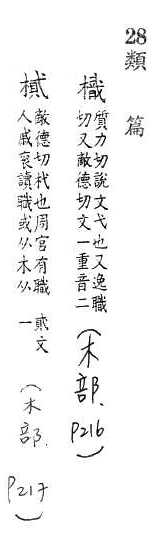 28類篇
樴 質力切說文弋也又逸職
切又敵德切文一重音二
(木部.
P216)
樲 敵德切杙也周官有職
人戚袞讀職或从木从
貮文一
(木部.
P217)